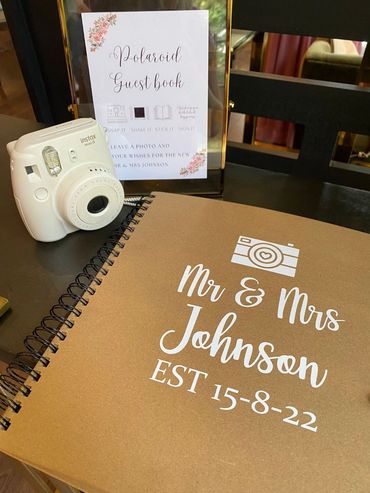 Polaroid
Guest book
SNAP IT SHAKE IT STICK IT SIGN IT
LEAVE A PHOTO AND
YOUR WISHES FOR THE NEW
MR & MRS JOHNSON
instax
mini 8
Mr & Mrs
Johnson
EST 15-8-22